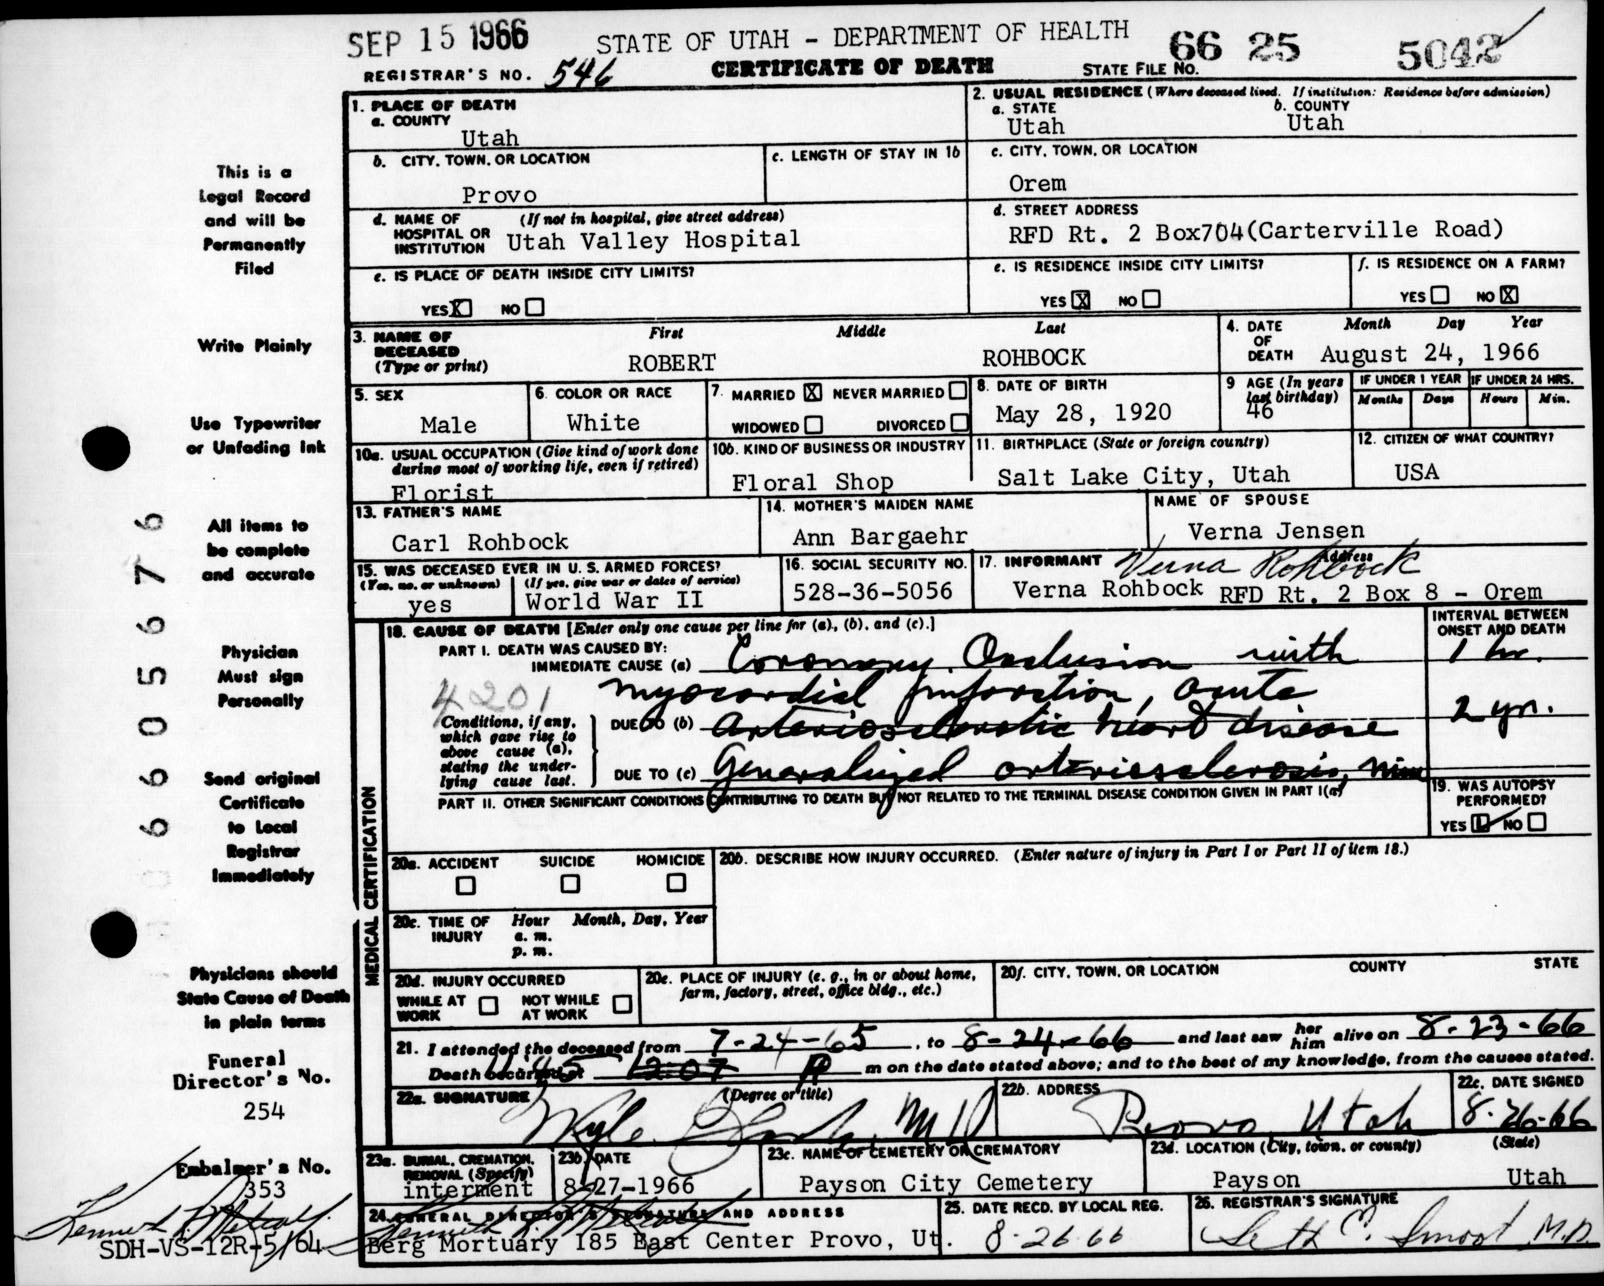 SEP 15 1966
STATE OF UTAH - DEPARTMENT OF HEALTH
66 25 5042
REGISTRAR'S NO. 546
CERTIFICATE OF DEATH
STATE FILE NO.
1. PLACE OF DEATH
a. COUNTY
Utah
2. USUAL RESIDENCE (Where deceased lived. If institution: Residence before admission)
a. STATE
Utah
b. COUNTY
Utah
b. CITY, TOWN, OR LOCATION
Provo
c. LENGTH OF STAY IN 1b
c. CITY, TOWN, OR LOCATION
Orem
d. NAME OF HOSPITAL OR INSTITUTION (If not in hospital, give street address)
Utah Valley Hospital
d. STREET ADDRESS
RFD Rt. 2 Box704(Carterville Road)
e. IS PLACE OF DEATH INSIDE CITY LIMITS?
YES X NO
e. IS RESIDENCE INSIDE CITY LIMITS?
YES X NO
f. IS RESIDENCE ON A FARM?
YES NO X
3. NAME OF DECEASED (Type or print)
First Middle Last
ROBERT ROHBOCK
4. DATE OF DEATH
Month Day Year
August 24, 1966
5. SEX
Male
6. COLOR OR RACE
White
7. MARRIED X NEVER MARRIED
WIDOWED DIVORCED
8. DATE OF BIRTH
May 28, 1920
9 AGE (In years last birthday)
46
IF UNDER 1 YEAR
Months Days
IF UNDER 24 HRS.
Hours Min.
10a. USUAL OCCUPATION (Give kind of work done during most of working life, even if retired)
Florist
10b. KIND OF BUSINESS OR INDUSTRY
Floral Shop
11. BIRTHPLACE (State or foreign country)
Salt Lake City, Utah
12. CITIZEN OF WHAT COUNTRY?
USA
13. FATHER'S NAME
Carl Rohbock
14. MOTHER'S MAIDEN NAME
Ann Bargaehr
NAME OF SPOUSE
Verna Jensen
15. WAS DECEASED EVER IN U. S. ARMED FORCES?
(Yes, no, or unknown) (If yes, give war or dates of service)
yes World War II
16. SOCIAL SECURITY NO.
528-36-5056
17. INFORMANT Address
Verna Rohbock
Verna Rohbock RFD Rt. 2 Box 8 - Orem
18. CAUSE OF DEATH [Enter only one cause per line for (a), (b), and (c).]
INTERVAL BETWEEN ONSET AND DEATH
PART I. DEATH WAS CAUSED BY:
IMMEDIATE CAUSE (a) Coronary Occlusion with
myocardial infarction, acute
1 hr.
4201
Conditions, if any, which gave rise to above cause (a), stating the underlying cause last.
DUE TO (b) arteriosclerotic heart disease
2 yr.
DUE TO (c) Generalized arteriosclerosis,
PART II. OTHER SIGNIFICANT CONDITIONS CONTRIBUTING TO DEATH BUT NOT RELATED TO THE TERMINAL DISEASE CONDITION GIVEN IN PART I(a)
19. WAS AUTOPSY PERFORMED?
YES NO
MEDICAL CERTIFICATION
20a. ACCIDENT SUICIDE HOMICIDE
20b. DESCRIBE HOW INJURY OCCURRED. (Enter nature of injury in Part I or Part II of item 18.)
20c. TIME OF INJURY
Hour Month, Day, Year
a. m.
p. m.
20d. INJURY OCCURRED
WHILE AT WORK NOT WHILE AT WORK
20e. PLACE OF INJURY (e. g., in or about home, farm, factory, street, office bldg., etc.)
20f. CITY, TOWN, OR LOCATION COUNTY STATE
21. I attended the deceased from 7-24-65, to 8-24-66 and last saw her him alive on 8-23-66
Death occurred at 11:45 12:07 P m on the date stated above; and to the best of my knowledge, from the causes stated.
22a. SIGNATURE (Degree or title)
M D
22b. ADDRESS
Provo, Utah
22c. DATE SIGNED
8-26-66
23a. BURIAL, CREMATION, REMOVAL (Specify)
interment
23b. DATE
8-27-1966
23c. NAME OF CEMETERY OR CREMATORY
Payson City Cemetery
23d. LOCATION (City, town, or county) (State)
Payson Utah
24. FUNERAL DIRECTOR'S SIGNATURE AND ADDRESS
Berg Mortuary 185 East Center Provo, Ut.
25. DATE RECD. BY LOCAL REG.
8-26-66
26. REGISTRAR'S SIGNATURE
Seth E. Smoot M.D.
This is a
Legal Record
and will be
Permanently
Filed
Write Plainly
Use Typewriter
or Unfading Ink
All items to
be complete
and accurate
Physician
Must sign
Personally
Send original
Certificate
to Local
Registrar
Immediately
Physicians should
State Cause of Death
in plain terms
Funeral
Director's No.
254
Embalmer's No.
353
SDH-VS-12R-5/64
6605676